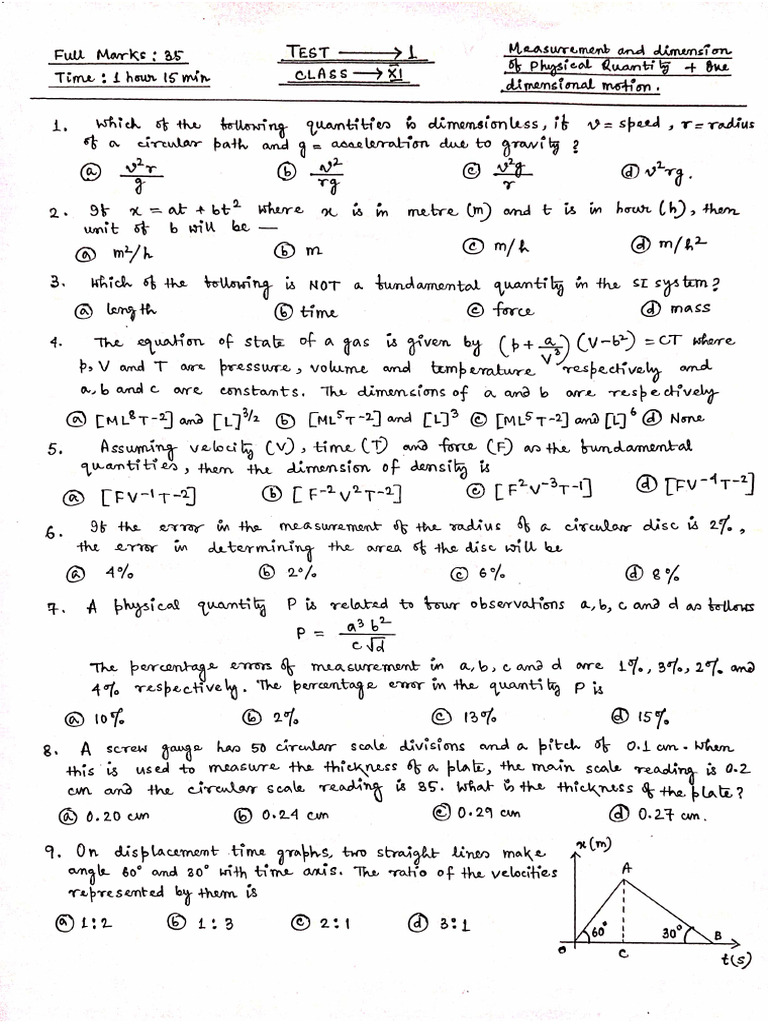 Full Marks : 35
Time : 1 hour 15 min
TEST → 1
CLASS → XI
Measurement and dimension
of Physical Quantity + One
dimensional motion.
1. Which of the following quantities is dimensionless, if v = speed, r = radius
of a circular path and g = acceleration due to gravity?
(a) v²r/g (b) v²/rg (c) v²g/r (d) v²rg.
2. If x = at + bt² where x is in metre (m) and t is in hour (h), then
unit of b will be —
(a) m²/h (b) m (c) m/h (d) m/h²
3. Which of the following is NOT a fundamental quantity in the SI system?
(a) length (b) time (c) force (d) mass
4. The equation of state of a gas is given by (p + a/V³) (V-b²) = CT where
p, V and T are pressure, volume and temperature respectively and
a, b and c are constants. The dimensions of a and b are respectively
(a) [ML⁸T-2] and [L]³/² (b) [ML⁵T-2] and [L]³ (c) [ML⁵T-2] and [L]⁶ (d) None
5. Assuming velocity (V), time (T) and force (F) as the fundamental
quantities, then the dimension of density is
(a) [FV-1T-2] (b) [F-2V²T-2] (c) [F²V-3T-1] (d) [FV-4T-2]
6. If the error in the measurement of the radius of a circular disc is 2%,
the error in determining the area of the disc will be
(a) 4% (b) 2% (c) 6% (d) 8%
7. A physical quantity P is related to four observations a, b, c and d as follows
P = a³b²/c√d
The percentage errors of measurement in a, b, c and d are 1%, 3%, 2% and
4% respectively. The percentage error in the quantity P is
(a) 10% (b) 2% (c) 13% (d) 15%
8. A screw gauge has 50 circular scale divisions and a pitch of 0.1 cm. When
this is used to measure the thickness of a plate, the main scale reading is 0.2
cm and the circular scale reading is 35. What is the thickness of the plate?
(a) 0.20 cm (b) 0.24 cm (c) 0.29 cm (d) 0.27 cm.
9. On displacement time graphs, two straight lines make
angle 60° and 30° with time axis. The ratio of the velocities
represented by them is
(a) 1:2 (b) 1:3 (c) 2:1 (d) 3:1
x(m)
A
60° 30°
O C B
t(s)